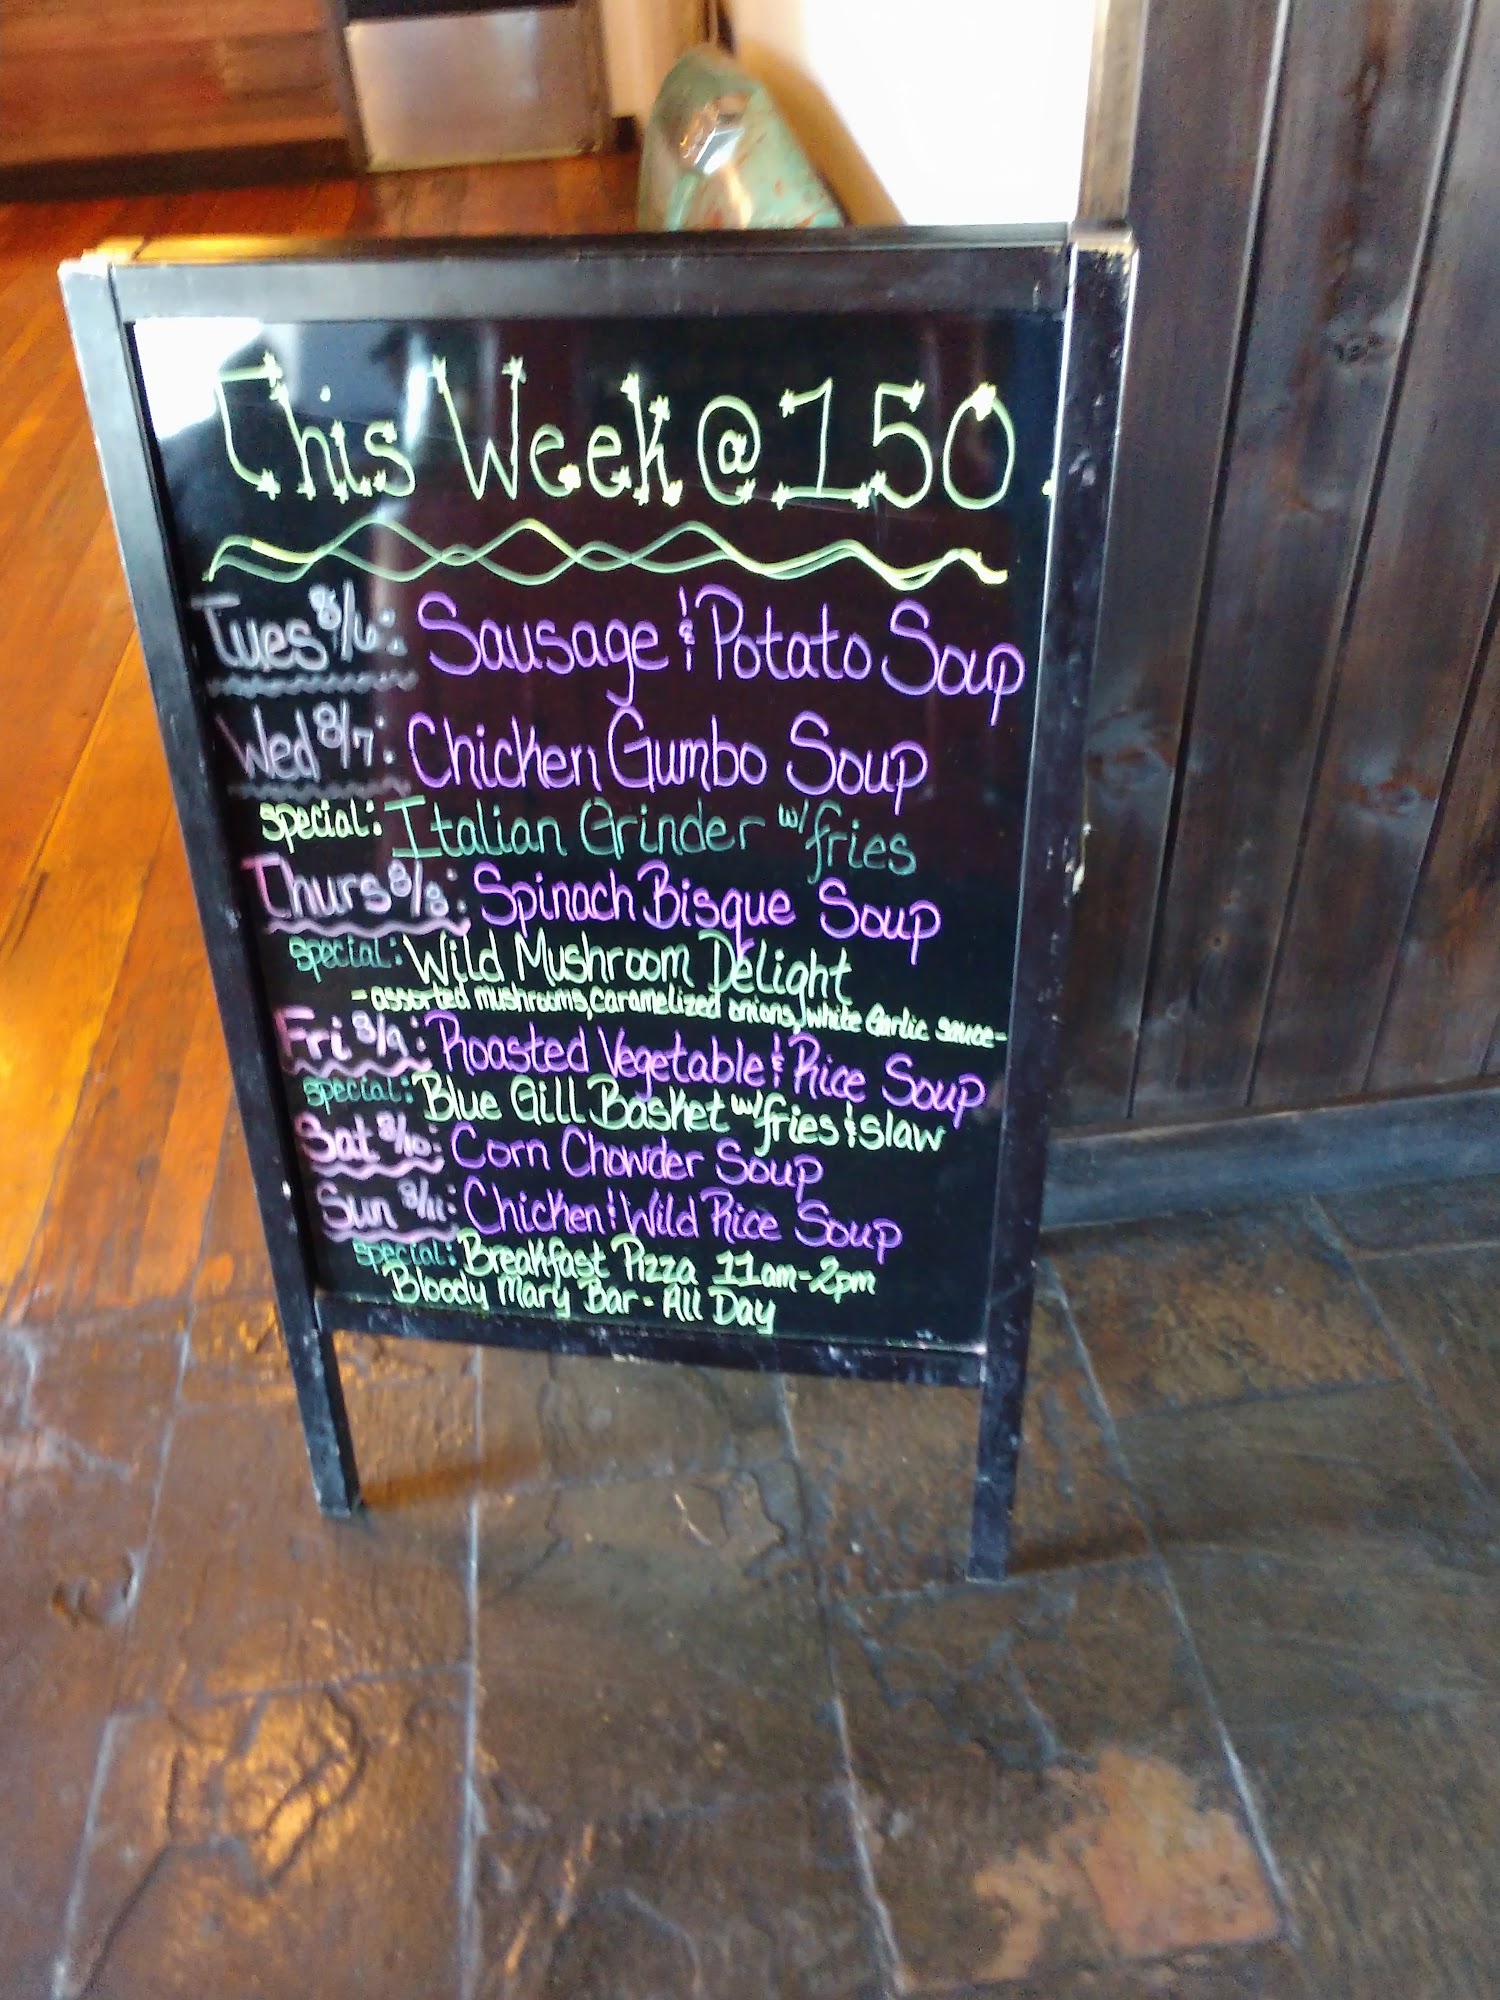 This Week @ 150
Tues 8/6: Sausage & Potato Soup
Wed 8/7: Chicken Gumbo Soup
special: Italian Grinder w/ fries
Thurs 8/8: Spinach Bisque Soup
special: Wild Mushroom Delight
- assorted mushrooms, caramelized onions, white Garlic sauce -
Fri 8/9: Roasted Vegetable & Rice Soup
special: Blue Gill Basket w/ fries & slaw
Sat 8/10: Corn Chowder Soup
Sun 8/11: Chicken & Wild Rice Soup
special: Breakfast Pizza 11am-2pm
Bloody Mary Bar - All Day